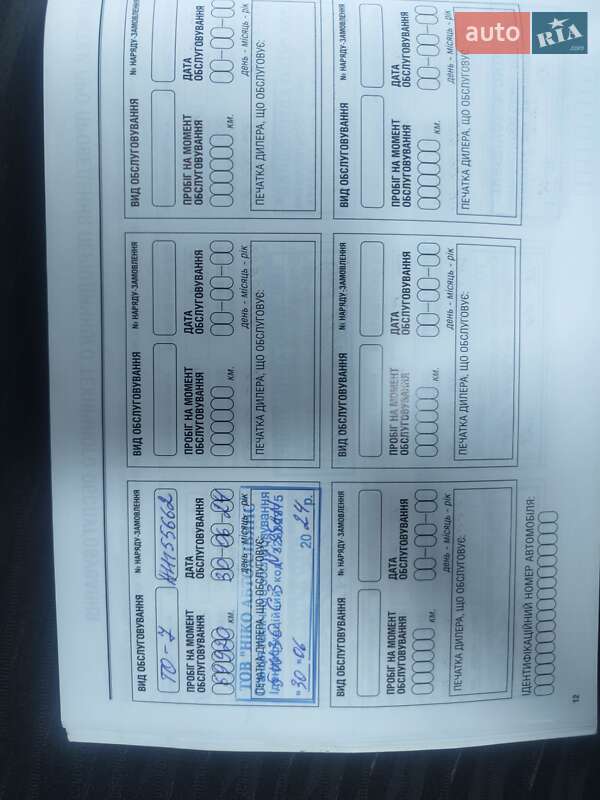 auto RIA.com
ВИД ОБСЛУГОВУВАННЯ № НАРЯДУ-ЗАМОВЛЕННЯ
ТО-7
ПРОБІГ НА МОМЕНТ ДАТА
ОБСЛУГОВУВАННЯ ОБСЛУГОВУВАННЯ
30-06-24
км. день - місяць - рік
ПЕЧАТКА ДИЛЕРА, ЩО ОБСЛУГОВУЄ:
ТОВ "НІКО
"30" 06 2024р.
ВИД ОБСЛУГОВУВАННЯ № НАРЯДУ-ЗАМОВЛЕННЯ
ПРОБІГ НА МОМЕНТ ДАТА
ОБСЛУГОВУВАННЯ ОБСЛУГОВУВАННЯ
км. день - місяць - рік
ПЕЧАТКА ДИЛЕРА, ЩО ОБСЛУГОВУЄ:
ВИД ОБСЛУГОВУВАННЯ № НАРЯДУ-ЗАМОВЛЕННЯ
ПРОБІГ НА МОМЕНТ ДАТА
ОБСЛУГОВУВАННЯ ОБСЛУГОВУВАННЯ
км. день - місяць - рік
ПЕЧАТКА ДИЛЕРА, ЩО ОБСЛУГОВУЄ:
ВИД ОБСЛУГОВУВАННЯ № НАРЯДУ-ЗАМОВЛЕННЯ
ПРОБІГ НА МОМЕНТ ДАТА
ОБСЛУГОВУВАННЯ ОБСЛУГОВУВАННЯ
км. день - місяць - рік
ПЕЧАТКА ДИЛЕРА, ЩО ОБСЛУГОВУЄ:
ВИД ОБСЛУГОВУВАННЯ № НАРЯДУ-ЗАМОВЛЕННЯ
ПРОБІГ НА МОМЕНТ ДАТА
ОБСЛУГОВУВАННЯ ОБСЛУГОВУВАННЯ
км. день - місяць - рік
ПЕЧАТКА ДИЛЕРА, ЩО ОБСЛУГОВУЄ:
ВИД ОБСЛУГОВУВАННЯ № НАРЯДУ-ЗАМОВЛЕННЯ
ПРОБІГ НА МОМЕНТ ДАТА
ОБСЛУГОВУВАННЯ ОБСЛУГОВУВАННЯ
км. день - місяць - рік
ПЕЧАТКА ДИЛЕРА, ЩО ОБСЛУГОВУЄ:
ІДЕНТИФІКАЦІЙНИЙ НОМЕР АВТОМОБІЛЯ:
12